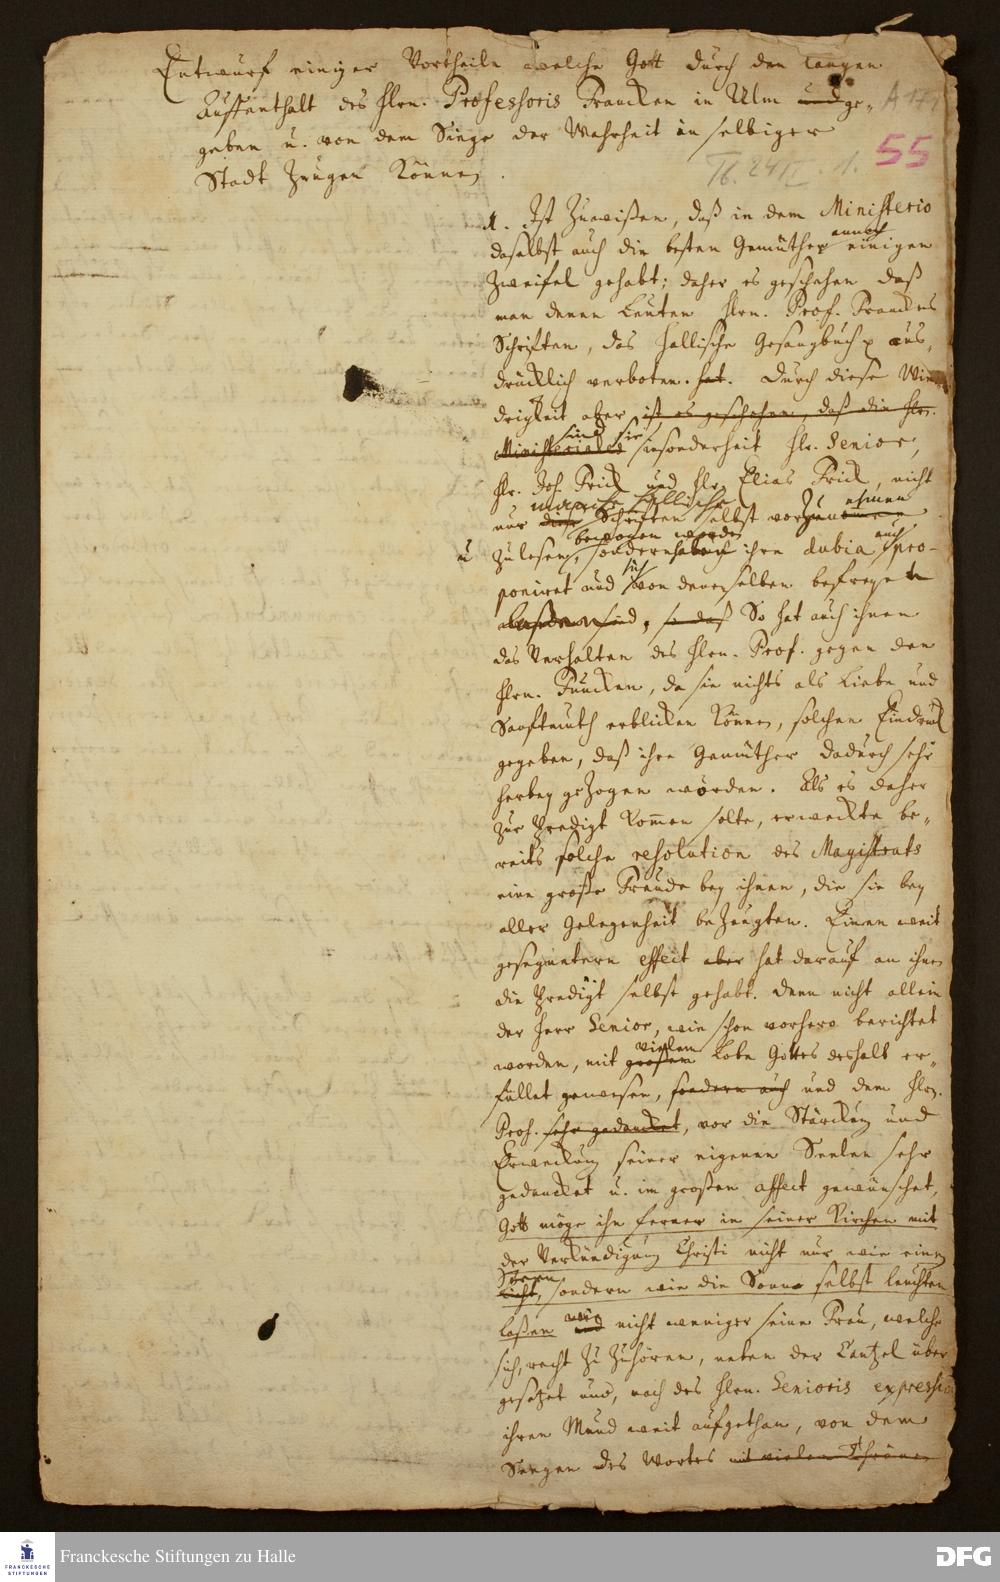 Entwurf einiger Vortheile welche Gott durch den langen
Auffenthalt des Hrn. Professoris Francken in Ulm und ge-
geben u. von dem Siege der Wahrheit in selbiger
Stadt zeugen können.
A 171
55
1. Ist zu wißen, daß in dem Ministerio
annoch
daselbst auch die besten Gemüther einigen
Zweifel gehabt; daher es geschehen daß
man denen Leuten Hrn. Prof. Franckens
Schriften, das Hallische Gesangbuch p aus-
drücklich verboten hat. Durch diese Wie-
drigkeit aber ist es geschehen, daß die Hrn.
sind sie
Ministeriales insonderheit Hr. Senior,
Hr. Joh. Frick und Hr. Elias Frick, nicht
manche Hallische ehmen
nur diese Schriften selbst vorzunommen
bewogen worden auch
u zulesen, sondern haben ihre dubia pro-
sich
poniret und von denenselben befreyet
, so daß So hat auch ihnen
das Verhalten des Hrn. Prof. gegen den
Hrn. Funcken, da sie nichts als Liebe und
Sanftmuth erblicken können, solchen Eindruck
gegeben, daß ihre Gemüther dadurch sehr
herbey gezogen worden. Als es daher
zur Predigt kommen solte, erweckte be-
reits solche resolution des Magistrats
eine große Freude bey ihnen, die sie bey
aller Gelegenheit bezeugten. Einen weit
gesegnetern effect aber hat darauf an ihnen
die Predigt selbst gehabt. Denn nicht allein
der Herr Senior, wie schon vorhero berichtet
vielem
worden, mit großem Lobe Gottes deshalb er-
füllet gewesen, sondern auch und dem Hrn.
Prof. sehr gedancket, vor die Stärckung und
Erweckung seiner eigenen Seelen sehr
gedancket u. im großen affect gewünschet,
Gott möge ihn ferner in seiner Kirchen mit
der Verkündigung Christi nicht nur wie einen
Stern
Licht, sondern wie die Sonne selbst leuchten
wie
laßen und nicht weniger seine Frau, welche
sich, recht zu zuhören, neben der Cantzel über
gesetzet und, nach des Hrn. Senioris expression
ihren Mund weit aufgethan, von dem
Seegen des Wortes mit vielen Thränen
Franckesche Stiftungen zu Halle
FRANCKESCHE
STIFTUNGEN
DFG